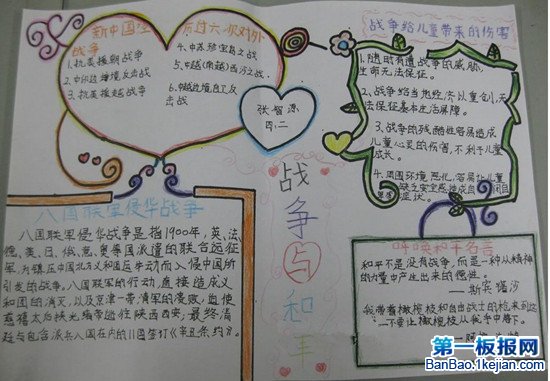 新中国经历过六次对外
战争
1、抗美援朝战争
2、中印边境反击战
3、抗美援越战争
4、中苏珍宝岛之战
5、中越(南越)西沙之战
6、中越边境自卫反
击战
张智源
四二
战争给儿童带来的伤害
1、随时有遭战争的威胁,
生命无法保证。
2、战争给当地经济以重创,无
法保证基本生活屏障。
3、战争的残酷性容易造成
儿童心灵的伤害,不利于儿童
成长。
4、周围环境恶化,容易让儿童
缺乏安全感造成自闭
症状。
战争与和平
八国联军侵华战争
八国联军侵华战争是指1900年,英、法、
德、美、日、俄、意、奥等国派遣的联合远征
军,为镇压中国北方义和团运动而入侵中国所
引发的战争。八国联军的行动,直接造成义
和团的消灭,以及京津一带清军的溃败,迫使
慈禧太后挟光绪帝逃往陕西西安,最终清
廷与包含派兵八国在内的11国签订《辛丑条约》。
呼唤和平名言
和平不是没有战争,而是一种从精神
的力量中产生出来的德性。
——斯宾诺沙
我带着橄榄枝和自由战士的枪来到这
不要让橄榄枝从我手中落下。
第一板报网
BanBao.1kejian.com